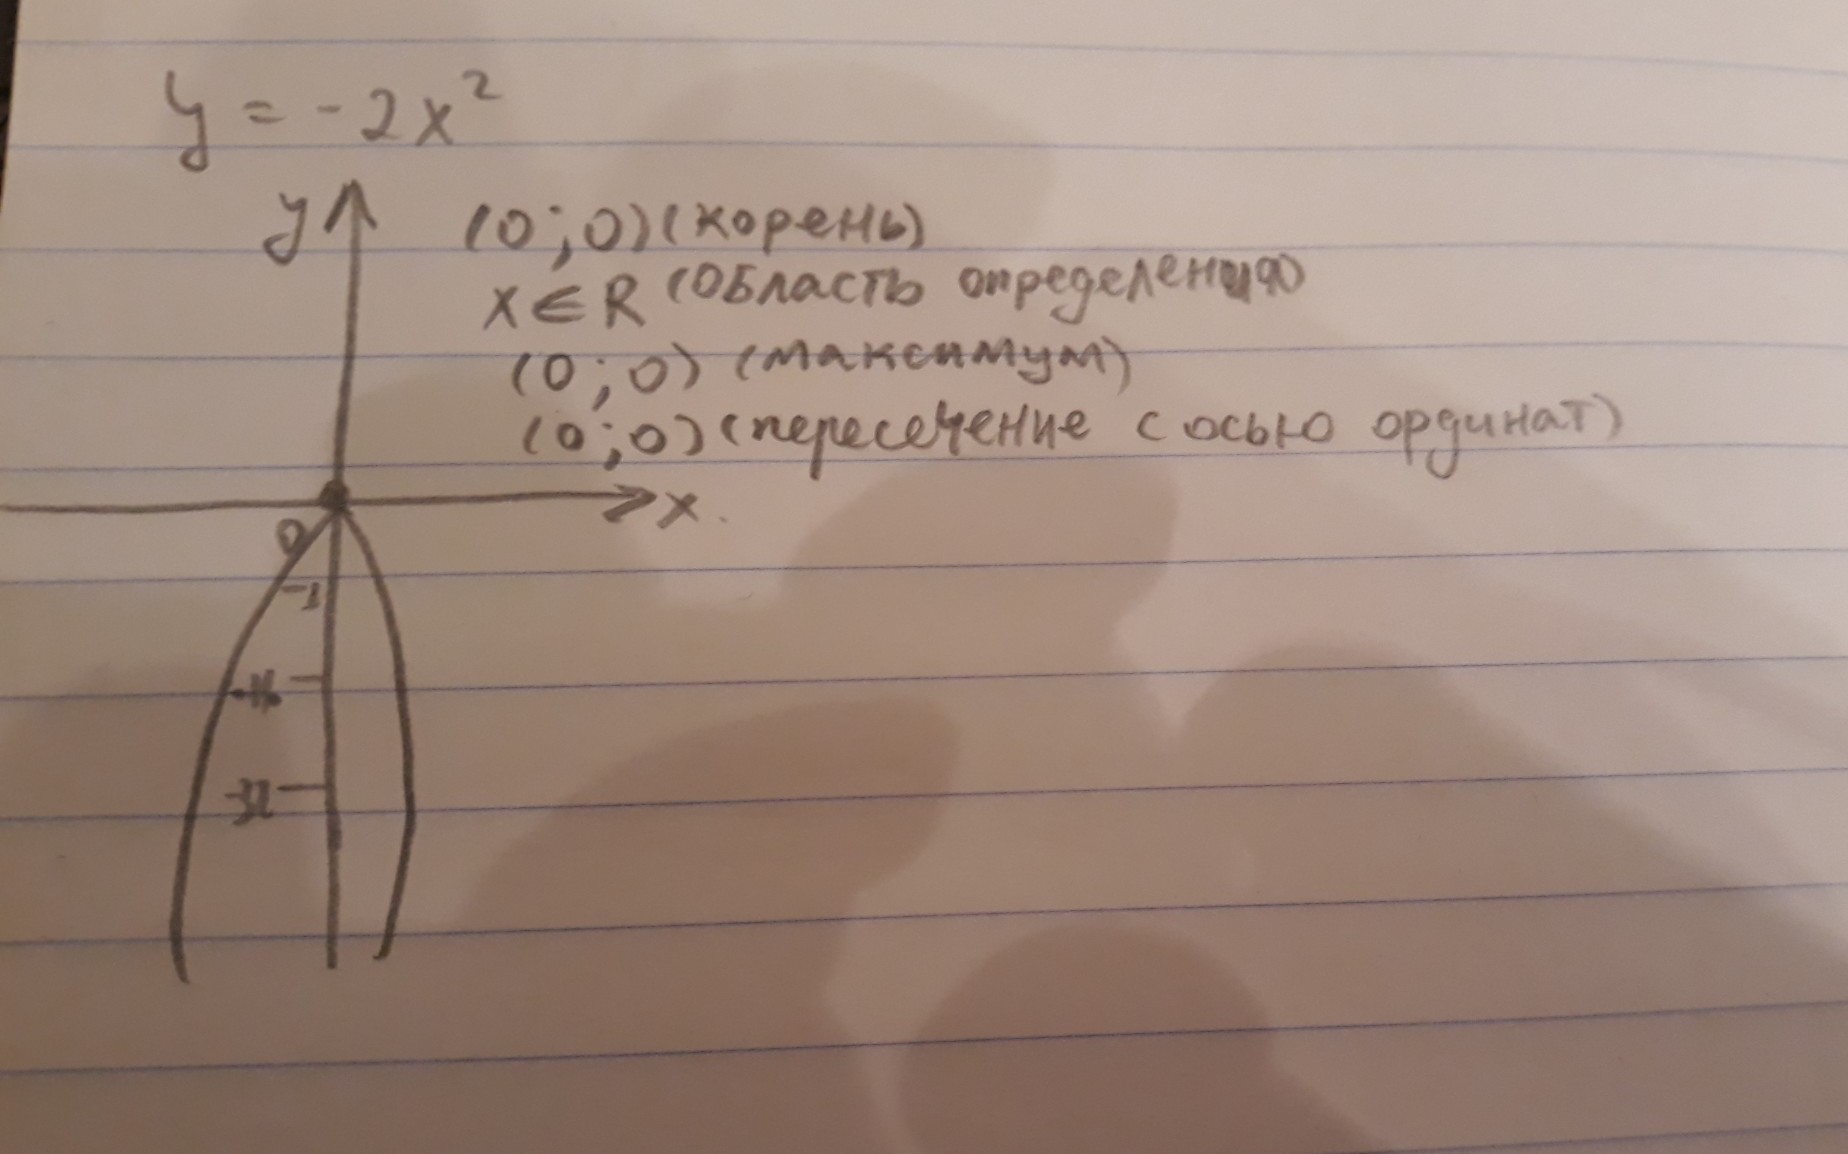 y = -2x²
y
(0;0) (корень)
x ∈ R (область определения)
(0;0) (максимум)
(0;0) (пересечение с осью ординат)
x
0
-1
-16
-32